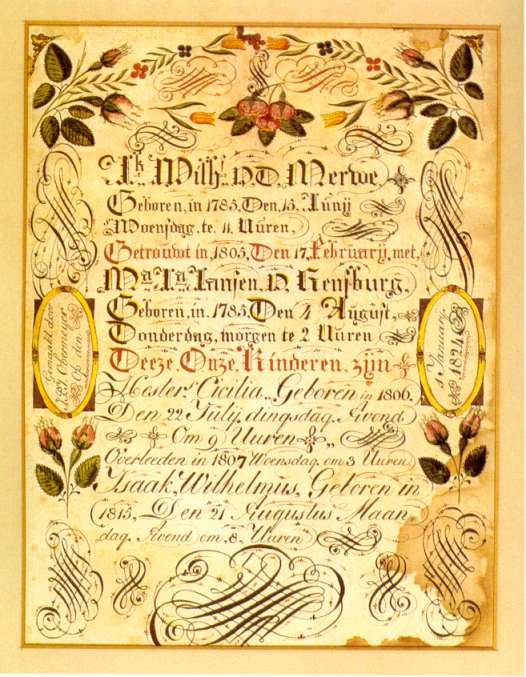 Isk Wilhs V.D. Merwe
Geboren, in 1785, Den, 15, Junij
Woensdag, te 11, Uuren,
Getrouwt in 1805, Den 17, Februarij, met,
Ma Ja Jansen, V. Rensburg,
Geboren, in, 1785, Den 4 August,
Donderdag, morgen te 2 Uuren
Deeze, Onze, Kinderen, zijn
Hester Cicilia, Geboren in 1806,
Den 22 Julij, dingsdag, Avond
Om 9 Uuren
Overleeden in 1807 Woensdag, om 3 Uuren
Isaak, Wilhelmus, Geboren in
1815, Den 21 Augustus Maan
dag, Avond om, 8, Uuren
Gemaakt door
Obermeyer
Op den
Januarij
1824